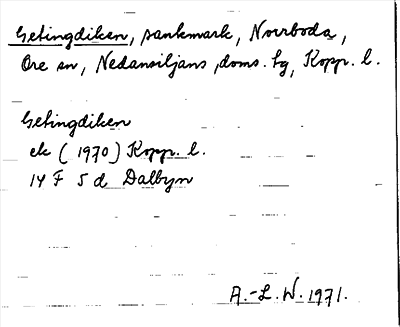 Getingdiken, sankmark, Norrboda,
Ore sn, Nedansiljans doms. tg, Kopp. l.
Getingdiken
ek (1970) Kopp. l.
14 F 5 d Dalbyn
A.-L. W. 1971.